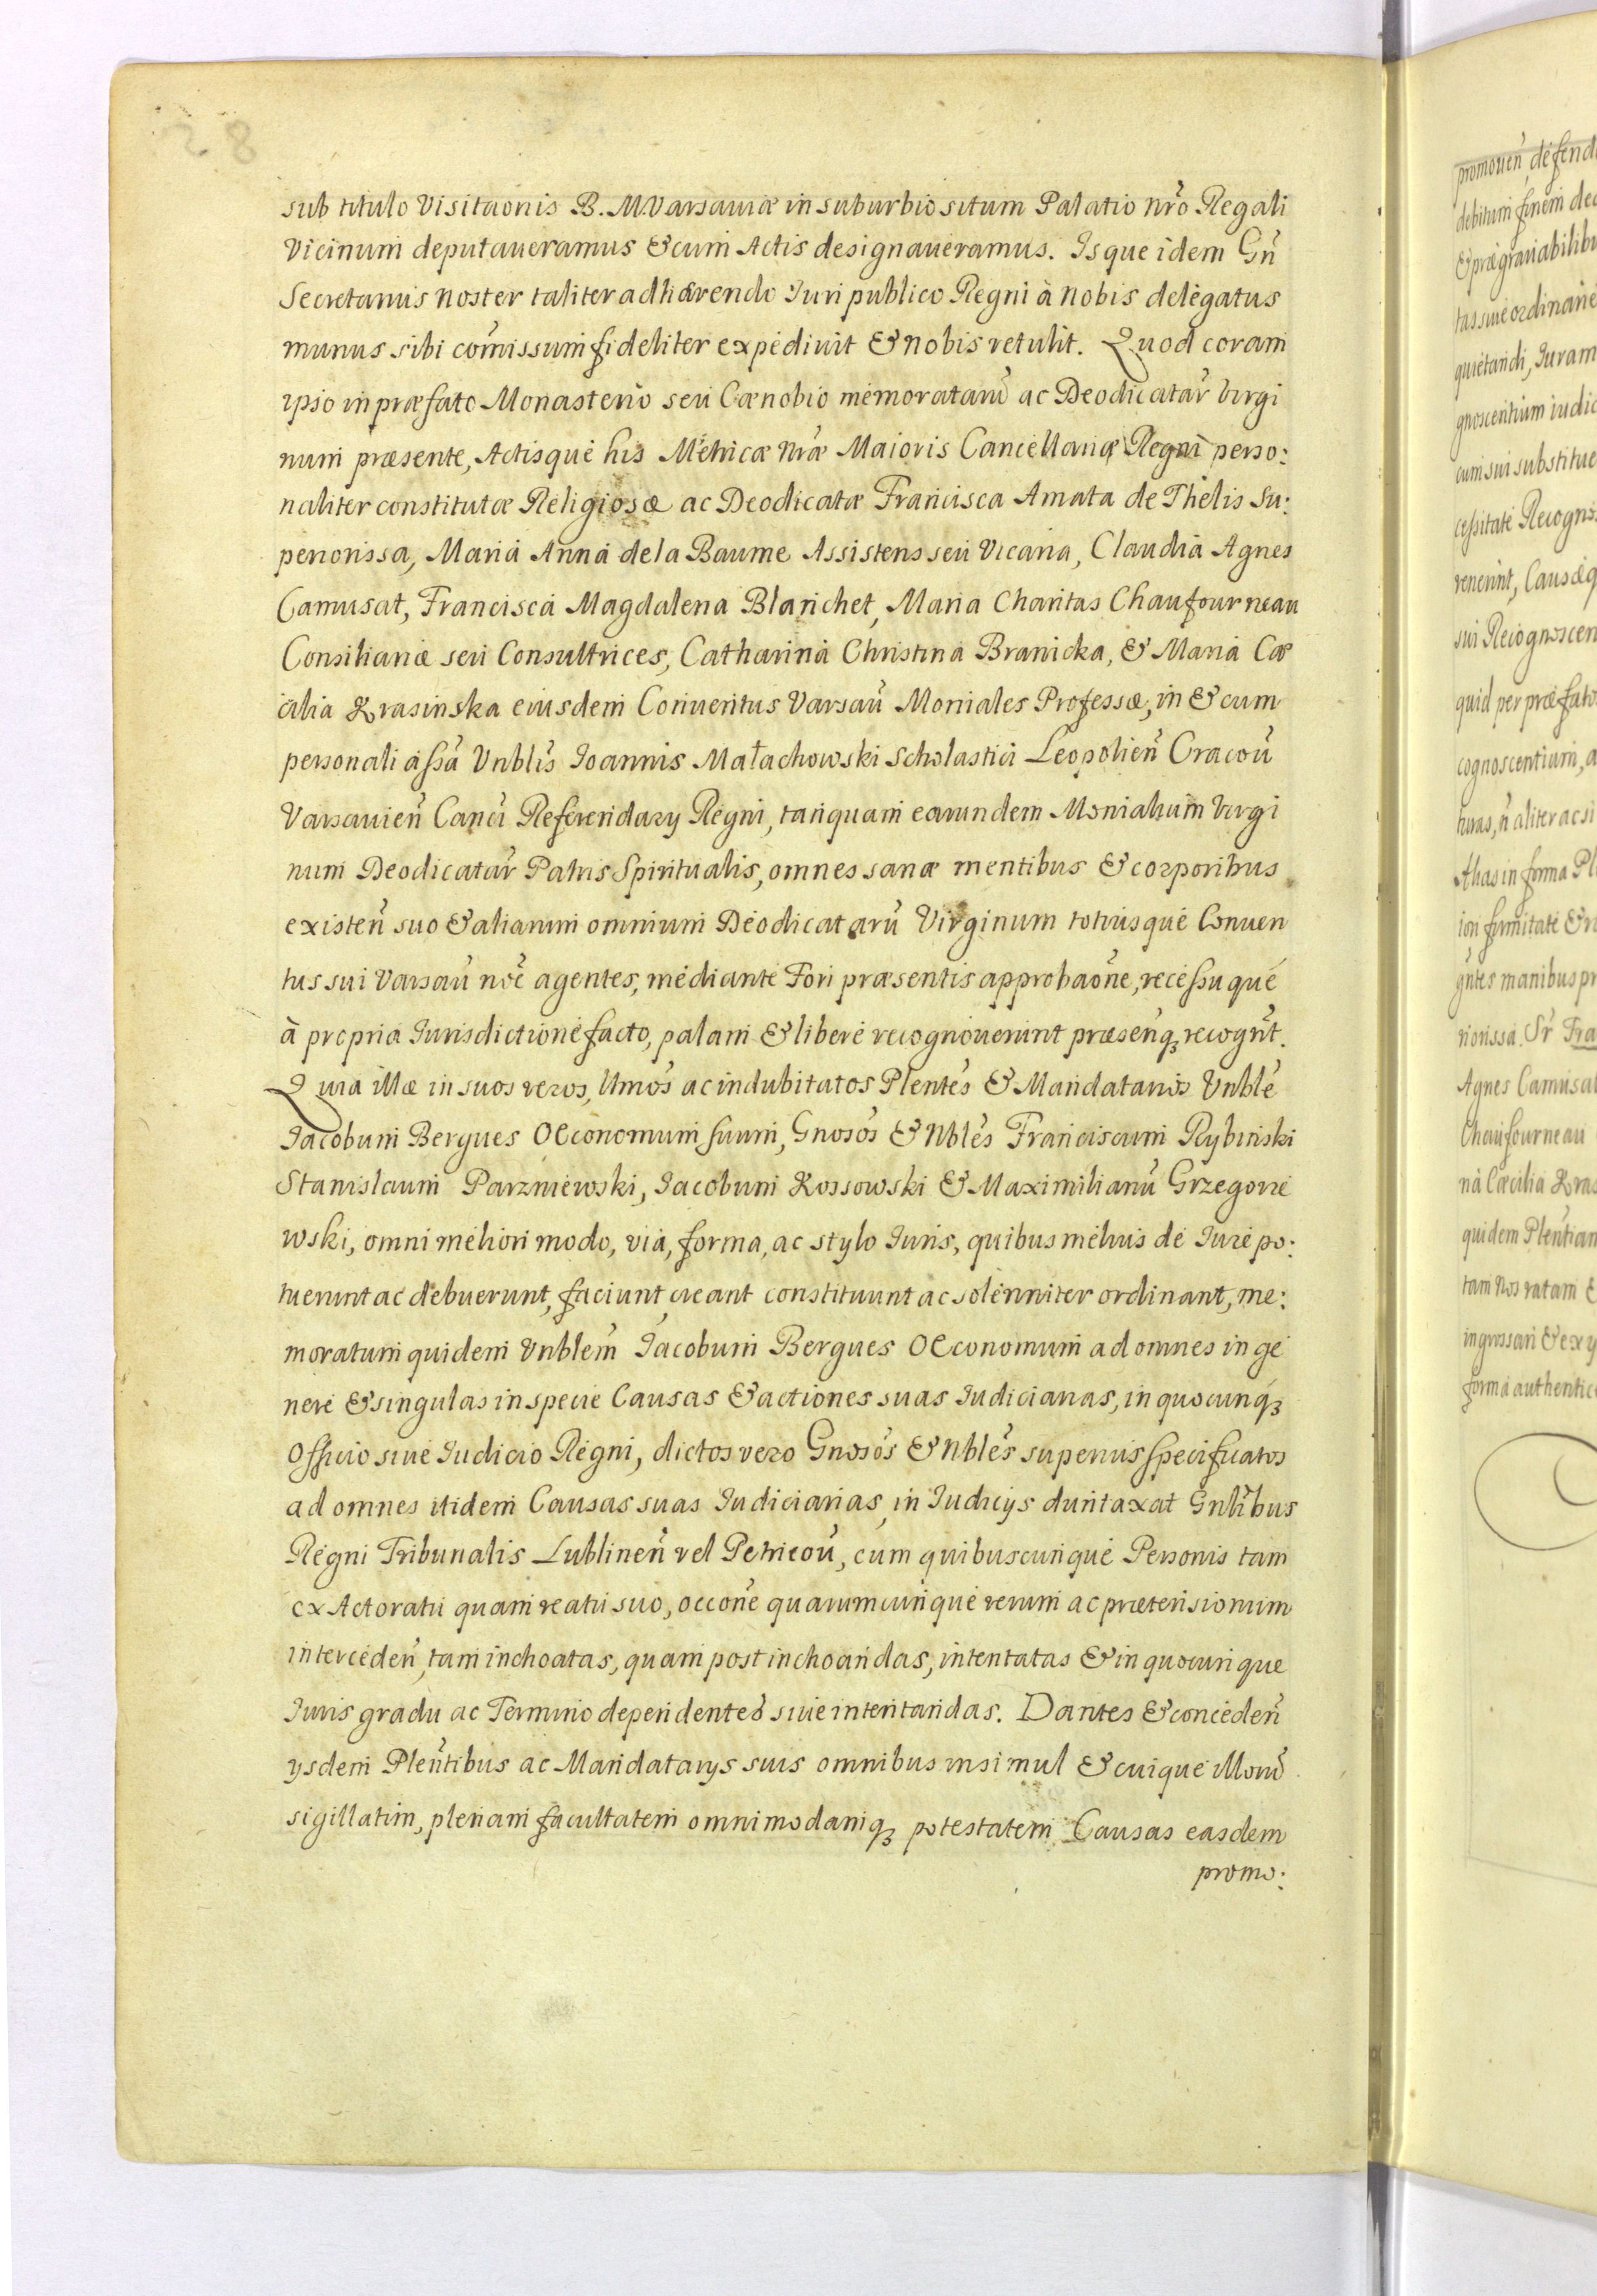 sub titulo Visitaõnis B. M. Varsaviæ in suburbio situm Palatio nrõ Regali
Vicinum deputaveramus & cum Actis designaveramus. Isque idem Gñ
Secretarius noster taliter adhærendo Iuri publico Regni à nobis delegatus
munus sibi com̃issum fideliter expedivit & nobis retulit. Quod coram
ipso in præfato Monasterio seu Cænobio memoratarũ ac Deodicatar̃ Virgi
num præsente, Actisque his Metricæ nr̃æ Maioris Cancellariæ Regni perso:
naliter constitutæ Religiosæ ac Deodicatæ Francisca Amata de Thelis Su:
periorissa, Maria Anna de la Baume Assistens seu Vicaria, Claudia Agnes
Camusat, Francisca Magdalena Blanchet, Maria Charitas Chaufourneau
Consiliariæ seu Consultrices, Catharina Christina Branicka, & Maria Cæ
cilia Krasinska eiusdem Conventus Varsaṽ Moniales Professæ, in & cum
personali assã Vnblis̃ Ioannis Małachowski Scholastici Leopolieñ Cracoṽ
Varsavieñ Cancĩ Referendarÿ Regni, tanquam earundem Monialium Virgi
num Deodicatar̃ Patris Spiritualis, omnes sanæ mentibus & corporibus
existeñ suo & aliarum omnium Deodicatarũ Virginum totiusque Conven
tus sui Varsaṽ nõe agentes, mediante Fori præsentis approbaõne, recessuque
à propria Iurisdictione facto, palam & libere recognoverunt præsenq; recogñt.
Quia illæ in suos veros, lt̃mos ac indubitatos Pleñtes & Mandatarios Vnblẽ
Iacobum Bergues OEconomum suum, Gñosos & Nblẽs Franciscum Rybinski
Stanislaum Parzniewski, Iacobum Kossowski & Maximilianũ Grzegorze
wski, omni meliori modo, via, forma, ac stylo Iuris, quibus melius de Iure po:
tuerunt ac debuerunt, faciunt creant constituunt ac solenniter ordinant, me:
moratum quidem Vnblem̃ Iacobum Bergues OEconomum ad omnes in ge
nere & singulas in specie Causas & actiones suas Iudiciarias, in quocunq;
Officio sive Iudicio Regni, dictos vero Gñosos & Nblẽs superius specificatos
ad omnes itidem Causas suas Iudiciarias, in Iudicÿs duntaxat Gñlibus
Regni Tribunalis Lublineñ vel Petricoṽ, cum quibuscunque Personis tam
ex Actoratu quam reatu suo, occõne quarumcunque rerum ac prætensionum
intercedeñ, tam inchoatas, quam post inchoandas, intentatas & in quocunque
Iuris gradu ac Termino dependentes sive intentandas. Dantes & concedeñ
ÿsdem Pleñtibus ac Mandatarÿs suis omnibus insimul & cuique illorũ
sigillatim, plenam facultatem omnimodamq; potestatem Causas easdem
promo:
promoveñ, defend
debitum finem ded
& prægravabilibu
tas sive ordinarie
quietandi, Iuram
gnoscentium iudic
cum sui substitue
cessitate Recogno
venerint, Causæq
sui Recognoscen
quid per præfato
cognoscentium, a
turas, ñ aliter ac si
Alias in forma Pl
ion firmitate & r
gñtes manibus pr
riorissa. Sr̃ Fra
Agnes Camusat
Chaufourneau
na Cæcilia Kras
quidem Pleñtiam
tam Nos ratam &
ingrossari & ex y
forma authentic